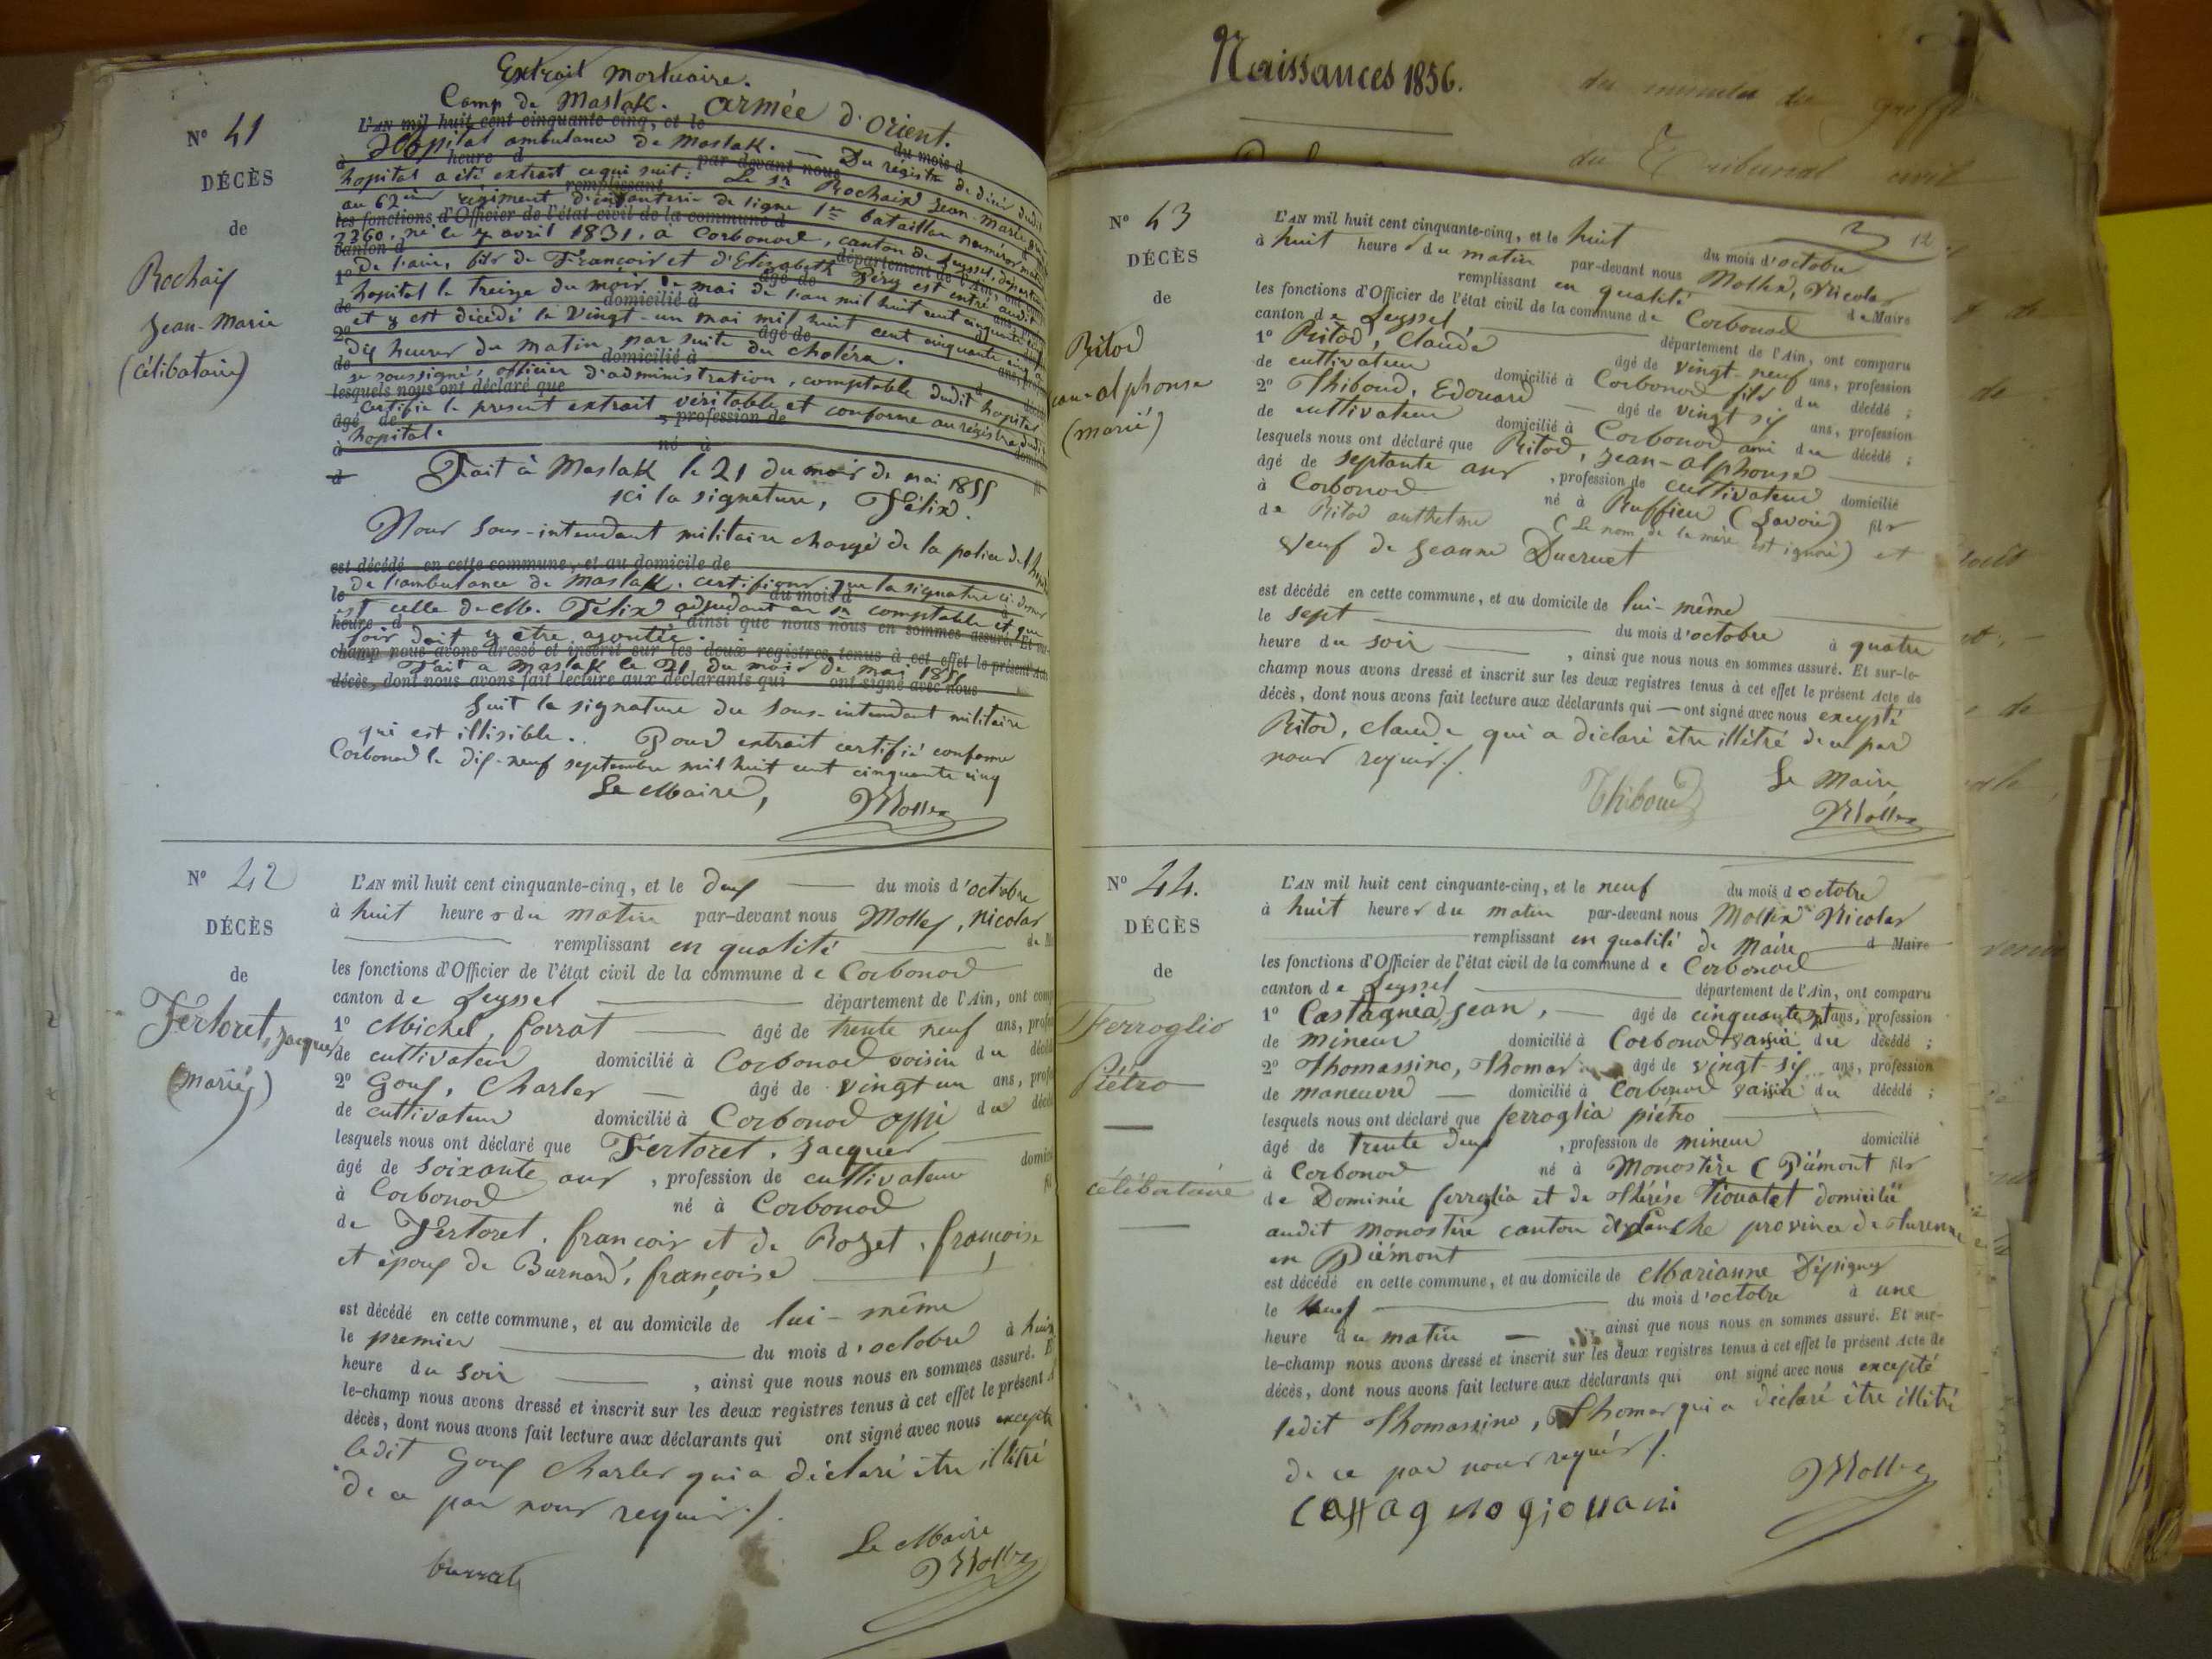 Extrait mortuaire.
Camp de Maslak. armée d'Orient.
N° 41
DÉCÈS
de
Rochaix
Jean-Marie
(célibataire)
L'AN mil huit cent cinquante-cinq, et le du mois d
Hôpital ambulance de Maslak. — Du régistre de décès dudit
à heure d par-devant nous
hopital a été extrait ce qui suit: Le Sr Rochaix Jean-Marie
remplissant
au 62ième régiment d'infanterie de ligne 1er bataillon numéro
les fonctions d'Officier de l'état civil de la commune d
2360, né le 7 avril 1831, à Corbonod, canton de Seyssel, départ
canton d département de l'Ain, ont
de l'ain, fils de François et d'Elizabeth Péry est entré audit
1° âgé de ans,
hopital le treize du mois de mai de l'an mil huit cent cinquante cinq
de domicilié à
et y est décédé le vingt-un mai mil huit cent cinquante cinq à
2° âgé de ans,
dix heures du matin, par suite du choléra.
de domicilié à d
je soussigné, officier d'administration, comptable dudit hopital
lesquels nous ont déclaré que
certifie le présent extrait véritable et conforme au régistre dudit
âgé de , profession de
hopital.
à né à
d
Fait à Maslak le 21 du mois de mai 1855
ici la signature, Félix.
Nous sous-intendant militaire chargé de la police de l'
est décédé en cette commune, et au domicile de
de l'ambulance de Maslak, certifions que la signature ci-dessus
le du mois d à
est celle de M. Félix adjudant en 2d comptable et que
heure d , ainsi que nous nous en sommes assuré. Et sur-
foi doit y être ajoutée.
champ nous avons dressé et inscrit sur les deux registres tenus à cet effet le présent Acte
Fait a Maslak le 21 du mois de mai 1855
décès, dont nous avons fait lecture aux déclarants qui ont signé avec nous
Suit la signature du sous-intendant militaire
qui est illisible. Pour extrait certifié conforme
Corbonod le dix-neuf septembre mil huit cent cinquante cinq
Le Maire,
Mollex
N° 42
DÉCÈS
de
Fertoret, Jacques
(mariés)
L'AN mil huit cent cinquante-cinq, et le deux du mois d'octobre
à huit heures du matin par-devant nous Mollex, Nicolas
remplissant en qualité de
les fonctions d'Officier de l'état civil de la commune de Corbonod
canton de Seyssel département de l'Ain, ont comp
1° Michel, forrat âgé de trente neuf ans, profes
de cultivateur domicilié à Corbonod voisin du décéd
2° Goux, Charles âgé de vingt un ans, profe
de cultivateur domicilié à Corbonod aussi du décéd
lesquels nous ont déclaré que Fertoret, Jacques
âgé de soixante ans , profession de cultivateur domici
à Corbonod né à Corbonod fil
de Fertoret, françois et de Rozet, françoise
et époux de Burnard, françoise
est décédé en cette commune, et au domicile de lui-même
le premier du mois d'octobre à huit
heure du soir , ainsi que nous nous en sommes assuré. E
le-champ nous avons dressé et inscrit sur les deux registres tenus à cet effet le présent A
décès, dont nous avons fait lecture aux déclarants qui ont signé avec nous excepté
ledit Goux Charles qui a déclaré être illétré
de ce par nous requis ./.
Le Maire
Mollex
Naissances 1856.
des minutes du greffe
du Tribunal civil
12
N° 43
DÉCÈS
de
Pitod
Jean-alphonse
(marié)
L'AN mil huit cent cinquante-cinq, et le huit du mois d'octobre
à huit heures du matin par-devant nous Mollex, Nicolas
remplissant en qualité de Maire
les fonctions d'Officier de l'état civil de la commune de Corbonod
canton de Seyssel, département de l'Ain, ont comparu
1° Pitod, Claude âgé de vingt-neuf ans, profession
de cultivateur domicilié à Corbonod fils du décédé ;
2° Thiboud, Edouard — âgé de vingt six ans, profession
de cultivateur domicilié à Corbonod ami du décédé ;
lesquels nous ont déclaré que Pitod, Jean-alphonse
âgé de septante ans , profession de cultivateur domicilié
à Corbonod né à Ruffieu (Savoie) fils
de Pitod anthelme (Le nom de la mère est ignoré) et
veuf de Jeanne Ducruet
est décédé en cette commune, et au domicile de lui-même
le sept du mois d'octobre à quatre
heure du soir , ainsi que nous nous en sommes assuré. Et sur-le-
champ nous avons dressé et inscrit sur les deux registres tenus à cet effet le présent Acte de
décès, dont nous avons fait lecture aux déclarants qui — ont signé avec nous excepté
Pitod, Claude qui a déclaré être illétré de ce par
nous requis ./.
Thiboud
Le Maire
Mollex
N° 44.
DÉCÈS
de
Ferroglio
Piétro
célibataire
L'AN mil huit cent cinquante-cinq, et le neuf du mois d'octobre
à huit heures du matin par-devant nous Mollex Nicolas
remplissant en qualité de Maire d Maire
les fonctions d'Officier de l'état civil de la commune de Corbonod
canton de Seyssel département de l'Ain, ont comparu
1° Castagnia, Jean, — âgé de cinquante sept ans, profession
de mineur domicilié à Corbonod du décédé ;
2° Thomassino, Thomas âgé de vingt-six ans, profession
de maneuvre — domicilié à Corbonod du décédé ;
lesquels nous ont déclaré que ferroglia piétro
âgé de trente deux , profession de mineur domicilié
à Corbonod né à Monostère (Piémont fils
de Dominie ferroglia et de Thérése domicilié
audit monostère canton de province de
en Piémont
est décédé en cette commune, et au domicile de Marianne
le neuf du mois d'octobre à une
heure du matin — , ainsi que nous nous en sommes assuré. Et sur-
le-champ nous avons dressé et inscrit sur les deux registres tenus à cet effet le présent Acte de
décès, dont nous avons fait lecture aux déclarants qui ont signé avec nous excepté
ledit Thomassino, Thomas qui a déclaré être illétré
de ce par nous requis ./.
Mollex
Castagno giovani